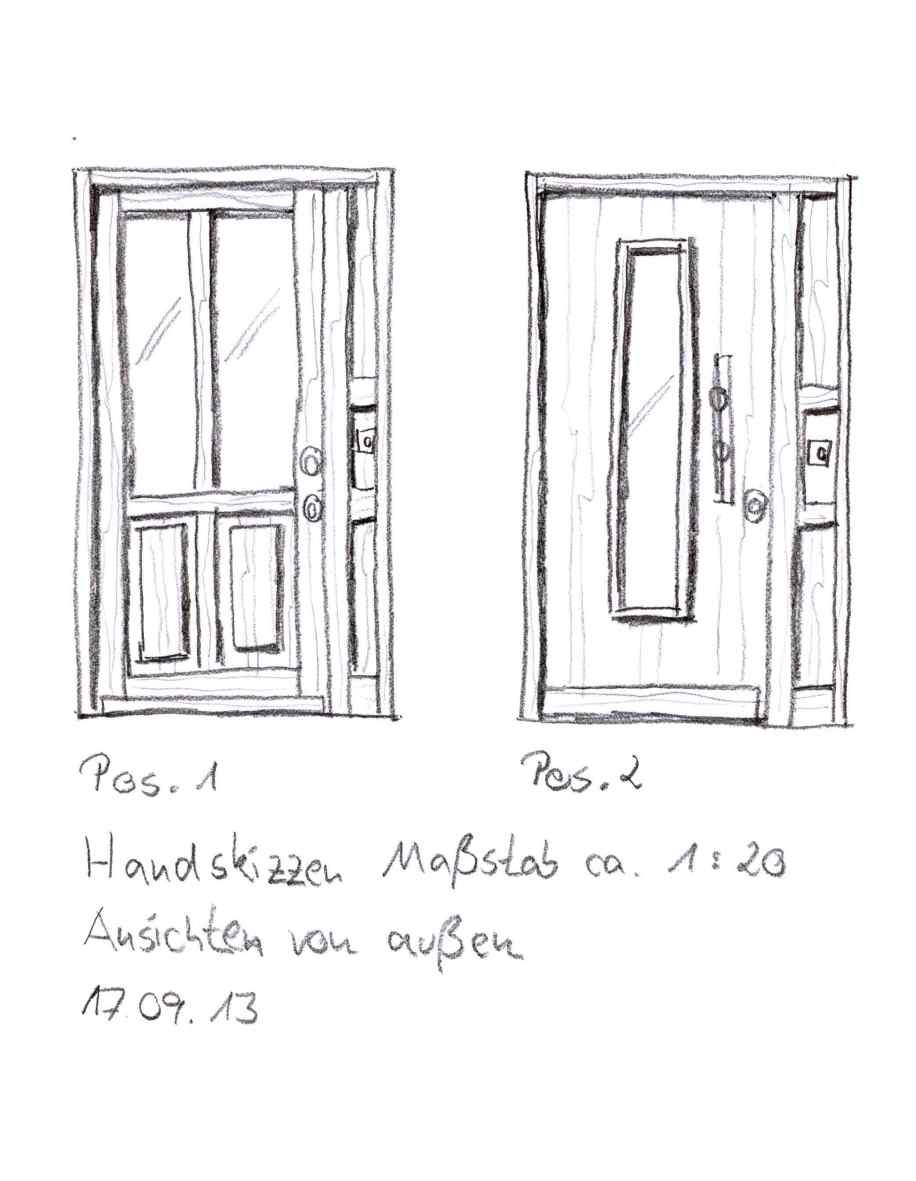 Pos. 1 Pos. 2
Handskizzen Maßstab ca. 1:20
Ansichten von außen
17.09.13